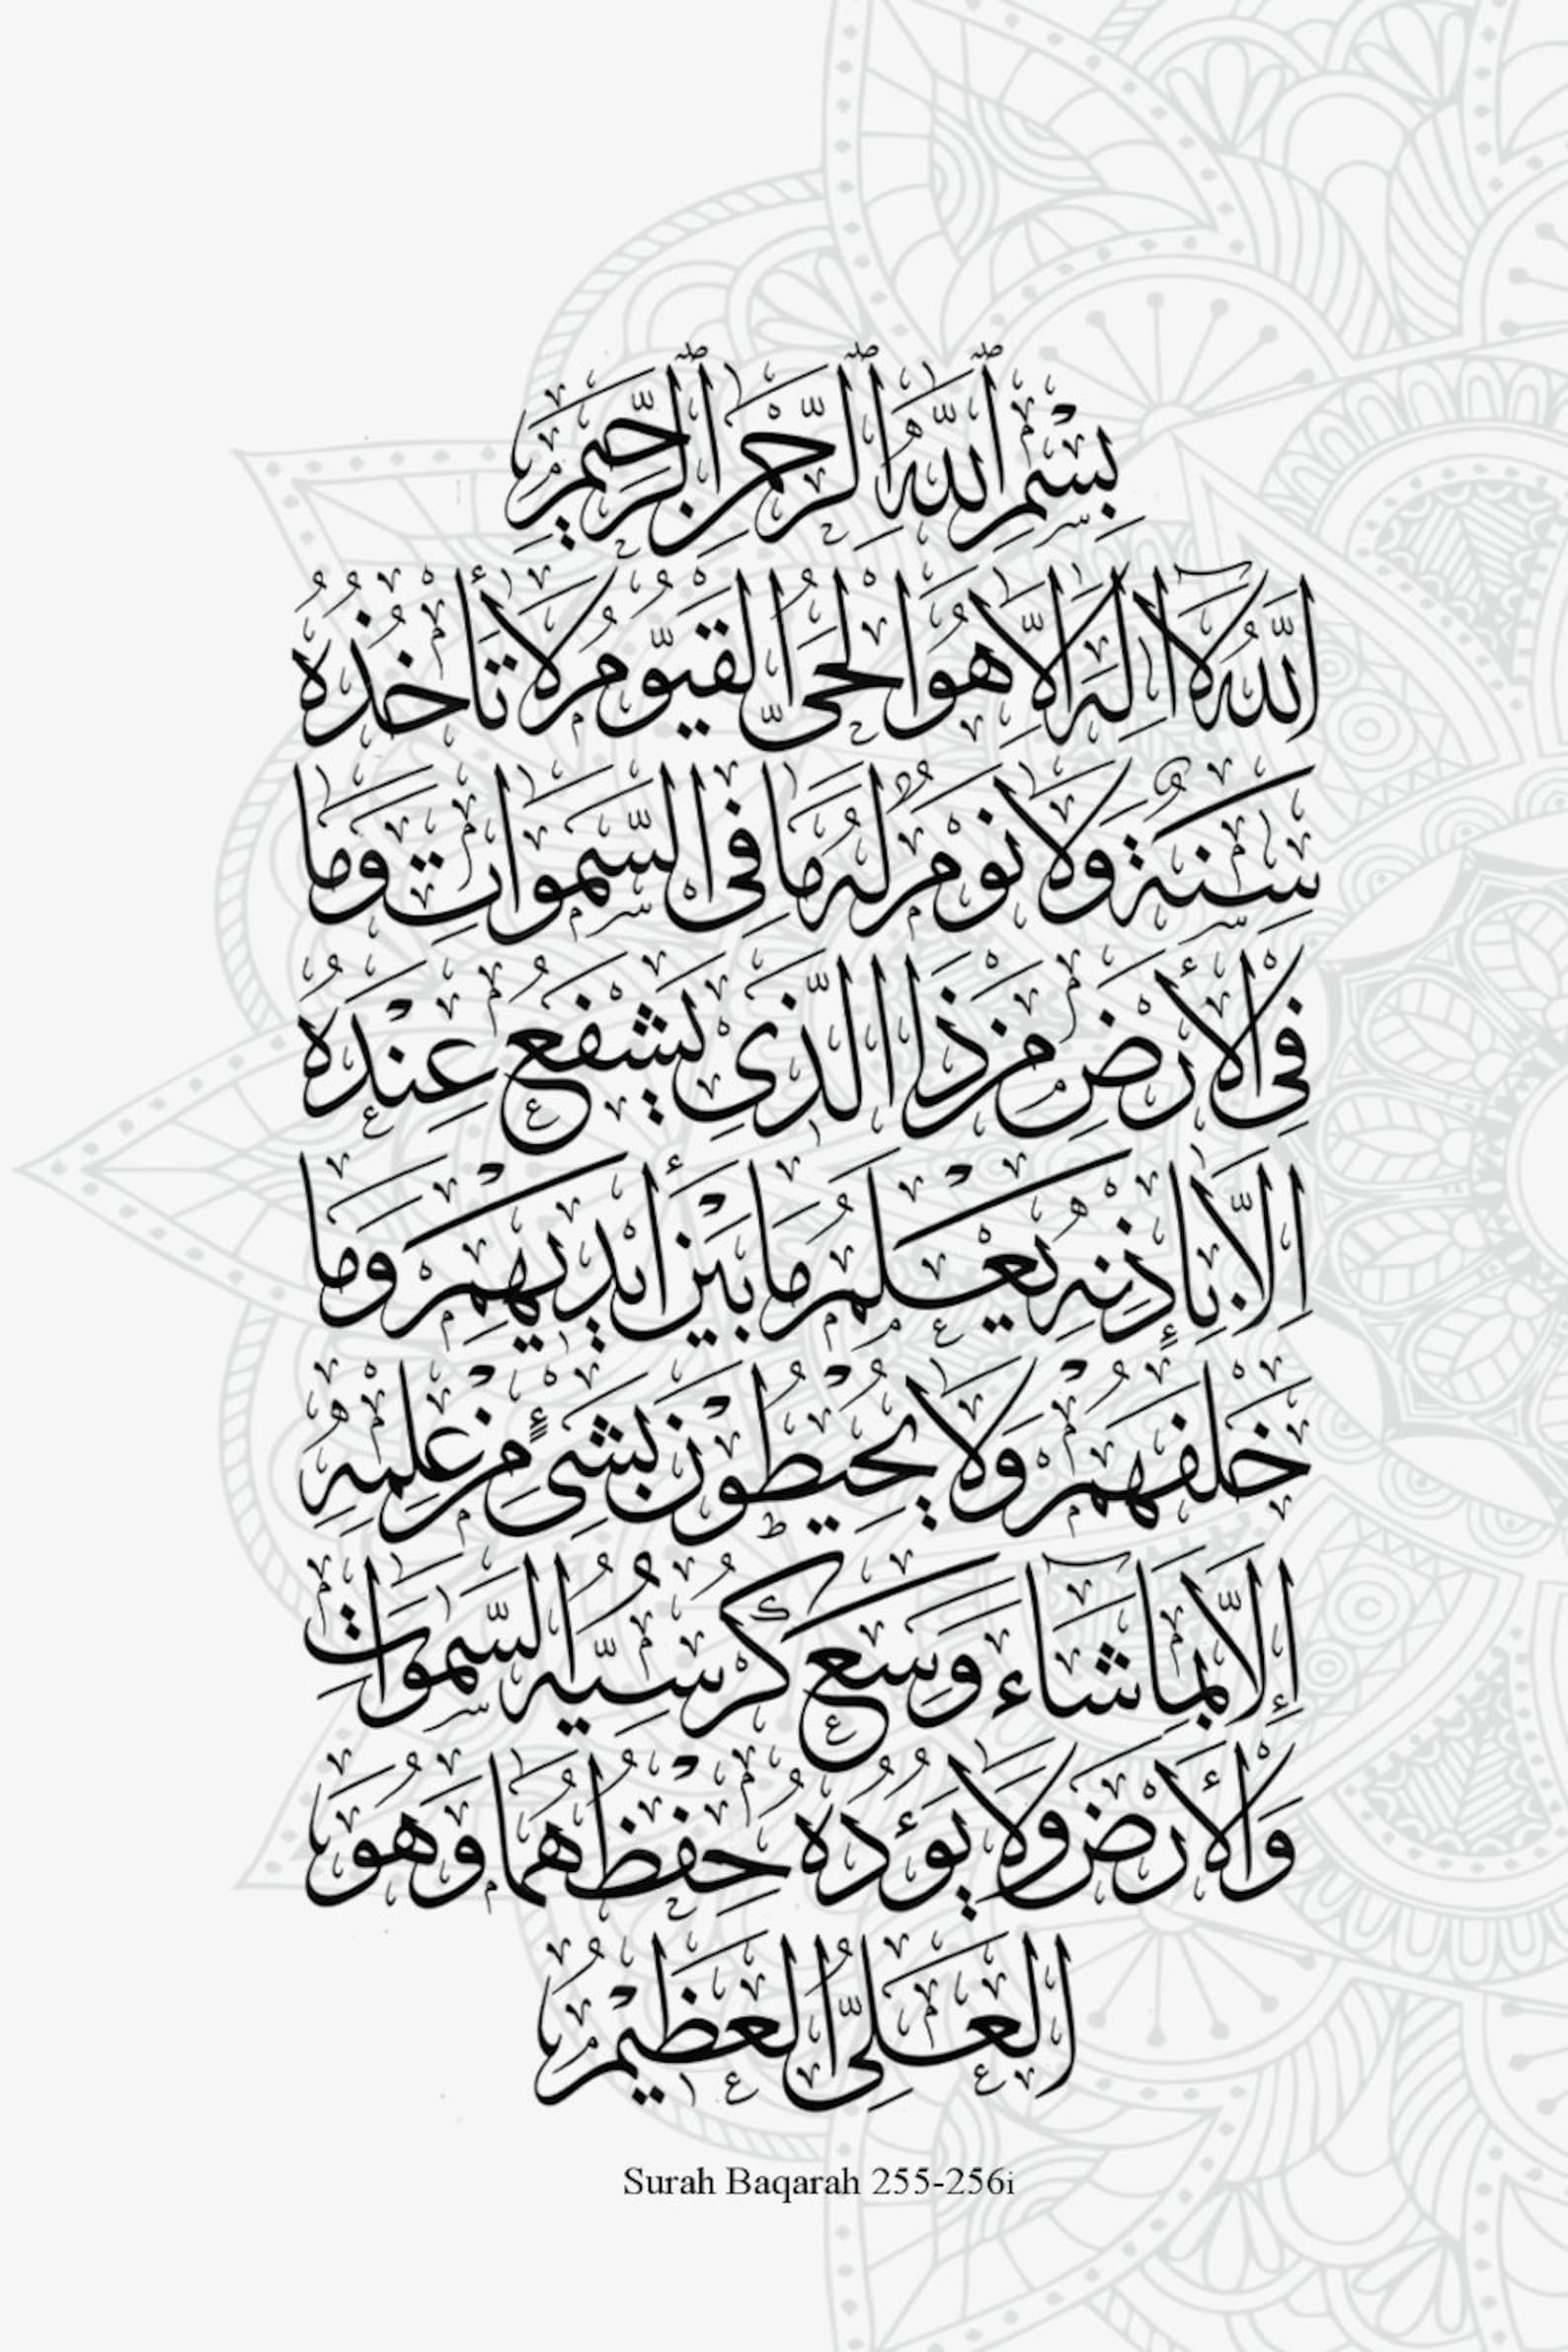 بِسْمِ اللَّهِ الرَّحْمَنِ الرَّحِيمِ
اَللّٰهُ لَا اِلٰهَ اِلَّا هُوَ الْحَىُّ الْقَيُّومُ لَا تَأْخُذُهُ
سِنَةٌ وَلَا نَوْمٌ لَهُ مَا فِى السَّمٰوَاتِ وَمَا
فِى الْأَرْضِ مَنْ ذَا الَّذِى يَشْفَعُ عِنْدَهُ
اِلَّا بِإِذْنِهِ يَعْلَمُ مَا بَيْنَ أَيْدِيهِمْ وَمَا
خَلْفَهُمْ وَلَا يُحِيطُونَ بِشَىْءٍ مِنْ عِلْمِهِ
إِلَّا بِمَا شَاءَ وَسِعَ كُرْسِيُّهُ السَّمٰوَاتِ
وَالْأَرْضَ وَلَا يَؤُدُهُ حِفْظُهُمَا وَهُوَ
الْعَلِىُّ الْعَظِيمُ
Surah Baqarah 255-256i